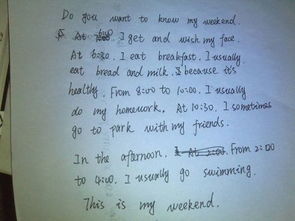 Do you want to know my weekend.
At 6:00 I get and wish my face.
At 6:30. I eat breakfast. I usually
eat bread and milk. I because it's
healthy. From 8:00 to 10:00. I usually
do my homework. At 10:30. I somotimas
go to park with my friends.
In the afternoon. I At 2:00 From 2:00
to 4:00. I usually go swimming.
This is my weekend.